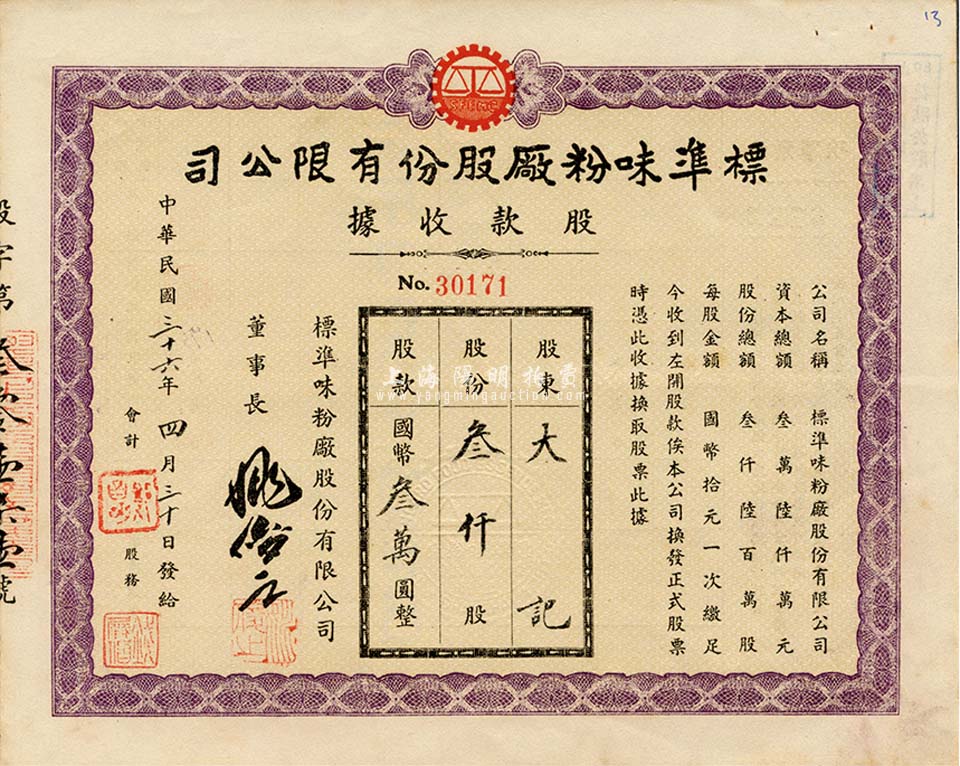 13
標準味粉厰股份有限公司
股款收據
No. 30171
公司名稱 標準味粉廠股份有限公司
資本總額 叁萬陸仟萬元
股份總額 叁仟陸百萬股
每股金額 國幣拾元一次繳足
今收到左開股款俟本公司換發正式股票
時憑此收據換取股票此據
股東 大記
股份 叁仟股
股款 國幣叁萬圓整
標準味粉廠股份有限公司
董事長
中華民國三十六年四月三十日發給
會計
股務
股字第
號
上海陽明拍賣
www.yangmingauction.com